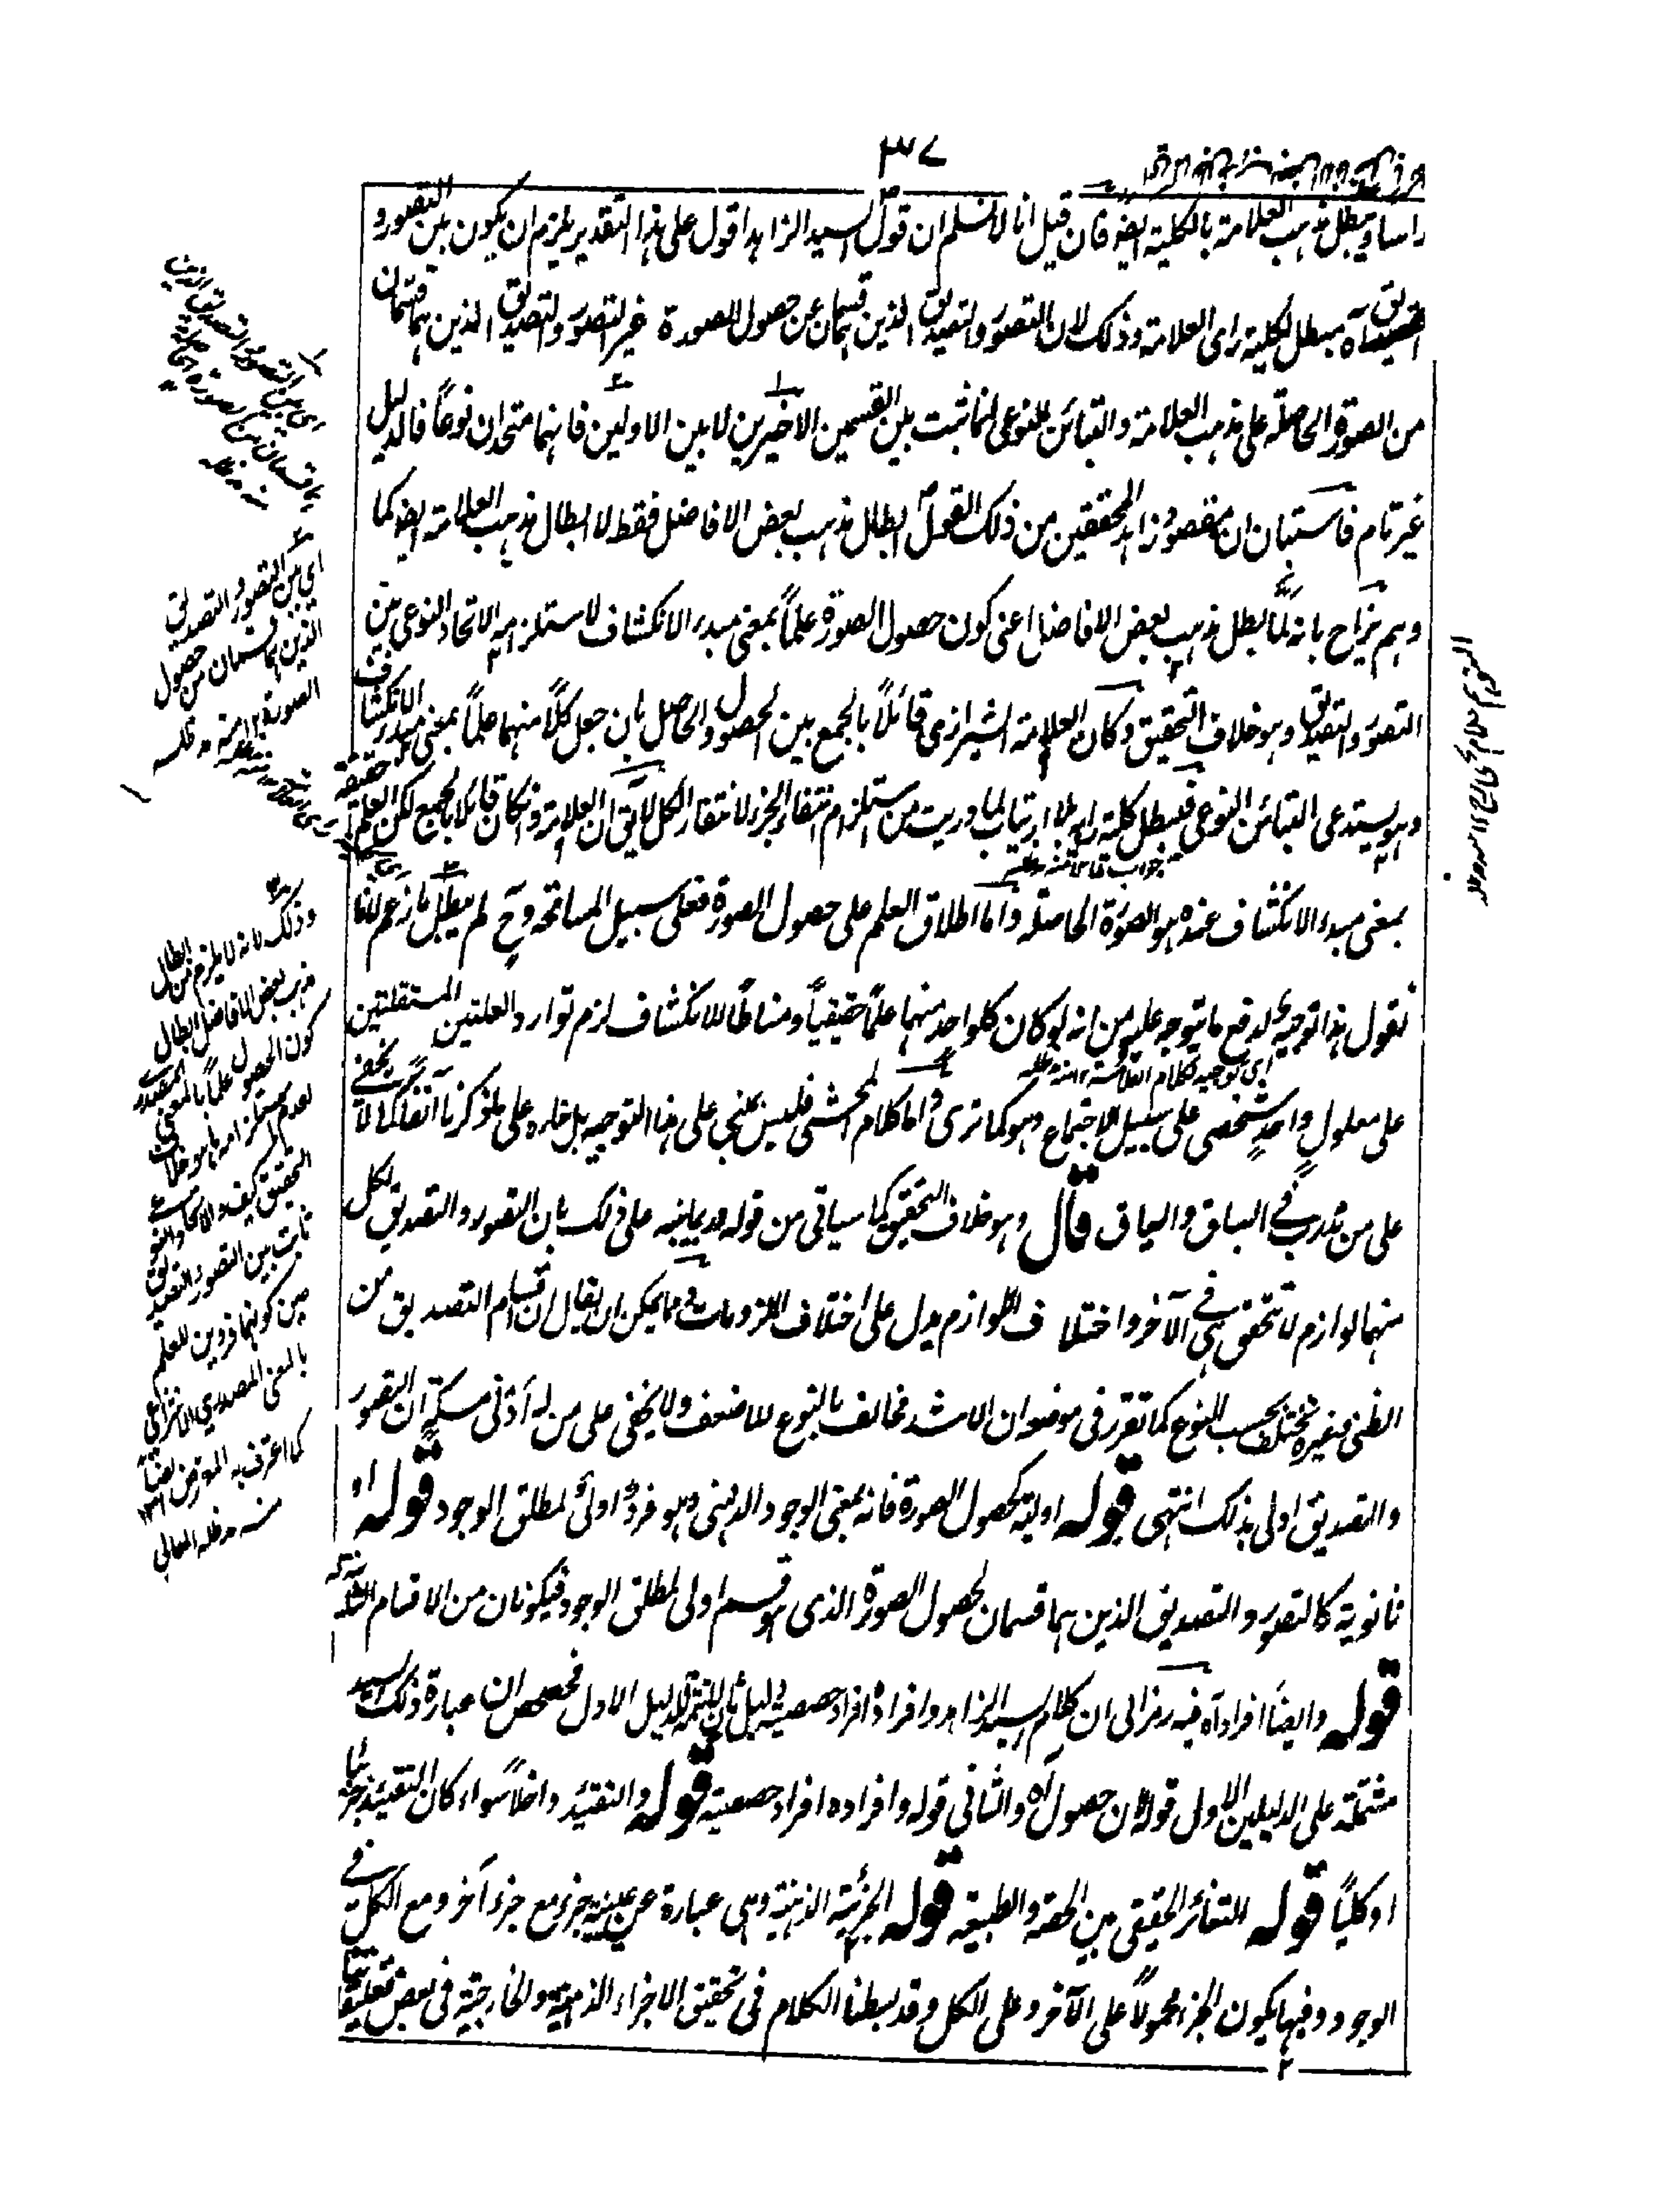 ٣٧
راسا ويبطل مذهب العلامة بالكلية ايضا فان قيل انا لا نسلم ان قول السيد الزاهد اقول على هذا التقدير يلزم ان يكون بين التصور و
التصديق آه مبطل لكلية راى العلامة وذلك لان التصور والتصديق الذين هما قسمان من حصول الصورة غير التصور والتصديق الذين هما قسمان
من الصورة الحاصلة على مذهب العلامة والتبائن النوعى انما ثبت بين القسمين الاخيرين لا بين الاولين فانهما متحدان نوعاً فالدليل
غير تام فاستبان ان مقصود زاهد المحققين من ذلك القول ابطال مذهب بعض الافاضل فقط لا ابطال مذهب العلامة ايضا كما
وهم يزاح بانه لما بطل مذهب بعض الافاضل اعنى كون حصول الصورة علماً بمعنى مبدء الانكشاف لاستلزامه الاتحاد النوعى بين
التصور والتصديق وهو خلاف التحقيق وكان العلامة الشيرازى قائلاً بالجمع بين الحصول والحاصل بان جعل كلاً منهما علماً بمعنى مبدء الانكشاف
وهو يستدعى التبائن النوعى فيبطل كلية رايه بلا ارتياب لما دريت من استلزام انتفاء الجزء لانتفاء الكل لا يق ان العلامة وان كان قائلا بالجميع لكن العلم حقيقة
بمعنى مبدء الانكشاف عنده هو الصورة الحاصلة واما اطلاق العلم على حصول الصورة فعلى سبيل المسامحة وح لم يبطل
نقول هذا توجيه لدفع ما يتوجه عليه من انه لو كان كل واحد منهما علماً حقيقياً ومناطاً للانكشاف لزم توارد العلتين المستقلتين
على معلول واحد شخصى على سبيل الاجتماع وهو كما ترى واما كلام المحشى فليس بمبنى على هذا التوجيه بل مداره على ما ذكرنا آنفا كما لا يخفى
على من تدرب فى السباق والسياق قال وهو خلاف التحقيق كما سياتى من قوله قد ينبه على ذلك بان التصور والتصديق لكل
منهما لوازم لا تتحقق هى فى الآخر واختلاف اللوازم يدل على اختلاف الملزومات ومما يمكن ان يقال ان اقسام التصديق من
الظنى وغيره مختلف بحسب النوع كما تقرر فى موضعه ان الاشد مخالف بالنوع للاضعف ولا يخفى على من له ادنى مسكة ان التصور
والتصديق اولى بذلك انتهى قوله اولية كحصول الصورة فانه بمعنى الوجود الذهنى وهو فرد اولى لمطلق الوجود قوله او
ثانوية كالتصور والتصديق الذين هما قسمان لحصول الصورة الذى هو قسم اولى لمطلق الوجود فيكونان من الاقسام الثانوية
قوله وايضاً افراده آه فيه رمز الى ان كلام السيد الزاهد وافراده افراد حصصية دليل ثان لا تتمة للدليل الاول فحصحص ان عبارة ذلك السيد
مشتملة على الدليلين الاول قوله لان حصول آه والثانى قوله وافراده افراد حصصية قوله والتقييد داخلاً سواء كان التقييد جزئيا
او كلياً قوله للتغائر الحقيقى بين الحصة والطبيعة قوله الجزئية الذهنية وهى عبارة عن عينية جزء مع جزء آخر ومع الكل فى
الوجود وفيها يكون الجزء محمولاً على الآخر وعلى الكل وقد بسطنا الكلام فى تحقيق الاجزاء الذهنية والخارجية فى بعض تعليقاتنا
اى بين التصور والتصديق
الذين هما قسمان من حصول
الصورة ١٢ منه مد ظله
وذلك لانه لا يلزم من ابطال
مذهب بعض الافاضل ابطال
كون الحصول علماً بالمعنى المصدرى
لعدم استلزامه ما هو خلاف
التحقيق كيف والاتحاد النوعى
ثابت بين التصور والتصديق
حين كونهما فردين للعلم
بالمعنى المصدرى الانتزاعى
كما اعترف به المورد ايضاً ١٢
منه مد ظله العالى
اى توجيه كلام العلامة ١٢ منه مد ظله